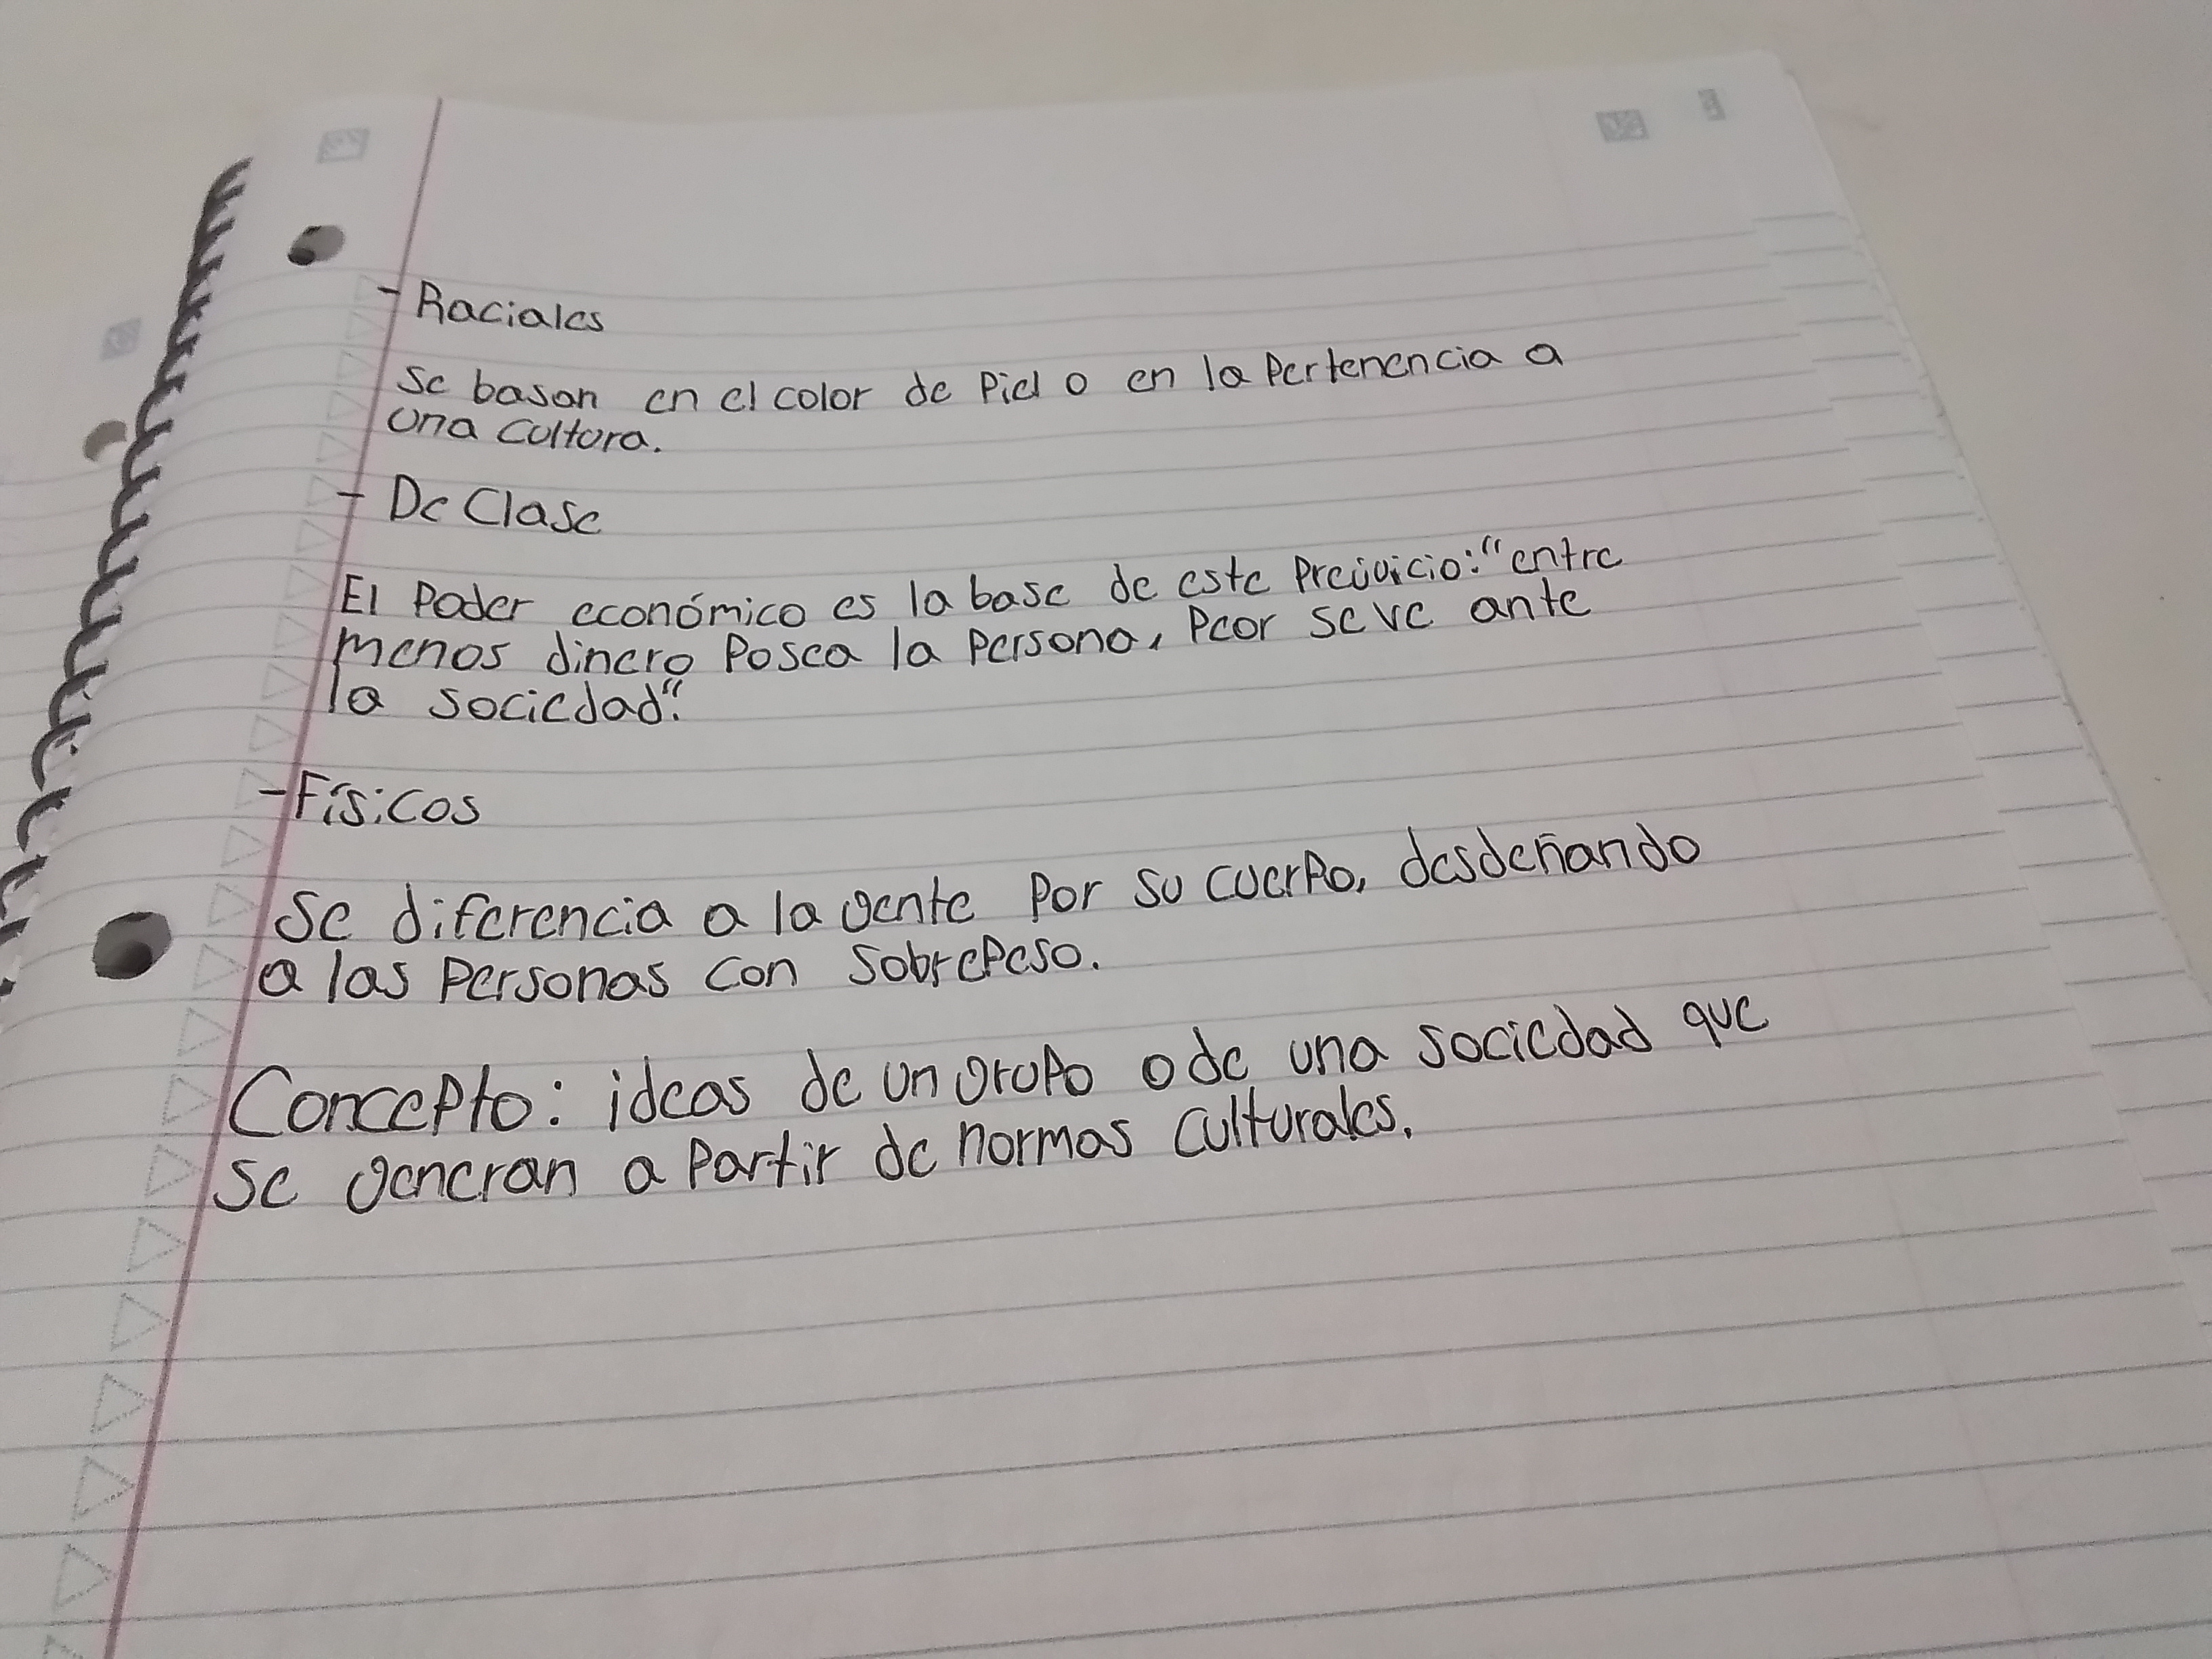 - Raciales
Se basan en el color de Piel o en la Pertenencia a
una cultura.
- De Clase
El Poder económico es la base de este Prejuicio: "entre
menos dinero Posea la Persona, Peor se ve ante
la sociedad".
- Físicos
Se diferencia a la gente Por su cuerpo, desdeñando
a las Personas con sobrepeso.
Concepto: ideas de un grupo o de una sociedad que
se generan a Partir de normas culturales.